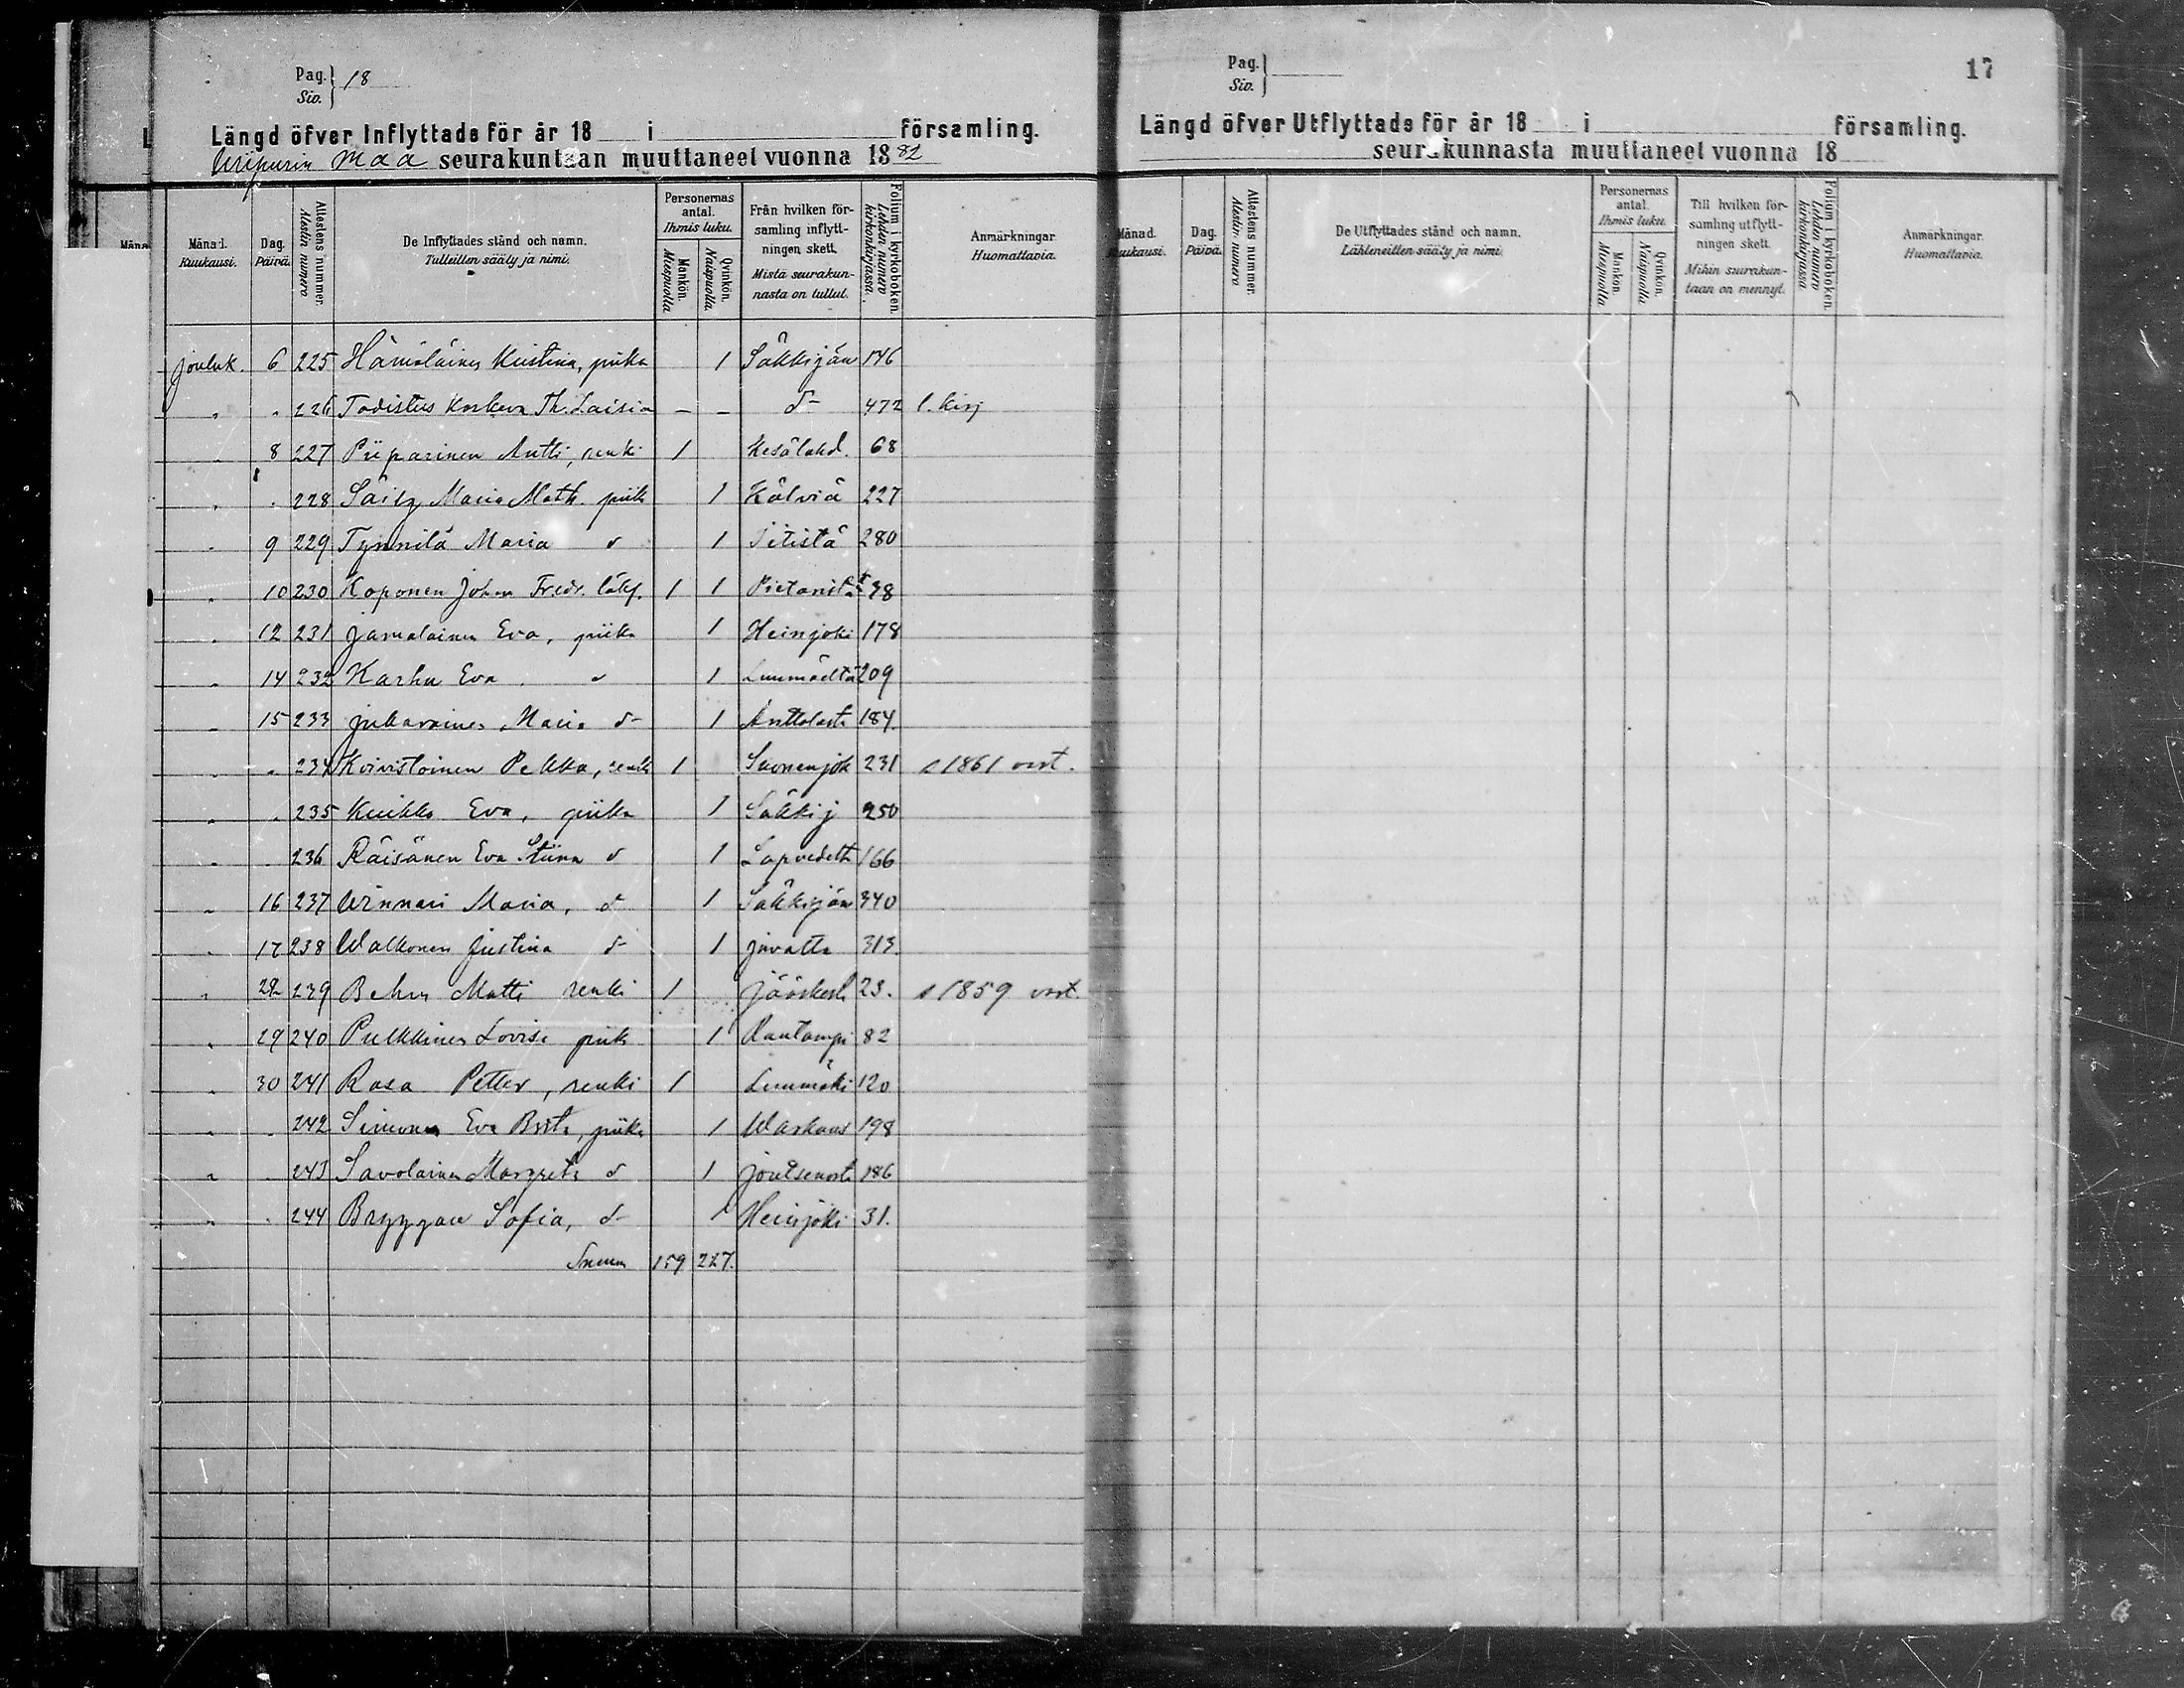 Pag. 18
Siv.
Längd öfver Inflyttade för år 18 i församling.
Wiipurin maa seurakuntaan muuttaneet vuonna 1882
Månad. Kuukausi. Dag. Päivä. Attestens nummer. Atestin numero De Inflyttades stånd och namn. Tulleitten sääty ja nimi. Personernas antal. Ihmis luku. Mankön. Miespuolia Qvinkön. Naispuolia. Från hvilken församling inflyttningen skett. Mistä seurakunnasta on tullut. Folium i kyrkoboken. Lehden numero kirkonkirjassa. Anmärkningar. Huomattavia.
Jouluk. 6 225 Hämäläinen Kristina, piika 1 Säkkijärv 146
" " 226 Todistus Th. Laisia - - d- 472 l. kirj
" 8 227 Piiparinen Antti, renki 1 Kesälahd. 68
" " 228 Maria Math. piik 1 Kälviä 227
" 9 229 Tynnilä Maria d 1 Iitistä 280
" 10 230 Koponen Johan Fredr. 1 1 38
" 12 231 Jamalainen Eva, piika 1 Heinjoki 178
" 14 232 Karhu Eva d 1 Luumäeltä 209
" 15 233 Maria d- 1 Anttolasta 184.
" " 234 Koivistoinen Pekka, renki 1 Suonenjok 231 s 1861 vest.
" " 235 Kuikko Eva, piika 1 Säkkij 250
" " 236 Räisänen Eva Stiina d 1 Lapvedeltä 166
" 16 237 Winnari Maria, d 1 Säkkijärv 340
" 17 238 Walkonen Justina d- 1 313.
" 28 239 Behm Matti renki 1 Jääskestä 23. s 1859 vest.
" 29 240 Pulkkinen Lovisa piik 1 Rautampi 82
" 30 241 Rasa Petter, renki 1 Luumäki 120
" " 242 Simonen Eva Brita, piika 1 Warkaus 198
" " 243 Savolainen Margreta d 1 Joutsenosta 186
" " 244 Bryggare Sofia, d- 1 Heinjoki 31.
Summa 159 227.
Pag.
Siv.
17
Längd öfver Utflyttade för år 18 i församling.
seurakunnasta muuttaneet vuonna 18
Månad. Kuukausi. Dag. Päivä. Attestens nummer. Atestin numero De Utflyttades stånd och namn. Lähteneitten sääty ja nimi. Personernas antal. Ihmis luku. Mankön. Miespuolia Qvinkön. Naispuolia Till hvilken församling utflyttningen skett. Mihin seurakuntaan on mennyt. Folium i kyrkoboken. Lehden numero kirkonkirjassa Anmärkningar. Huomattavia.